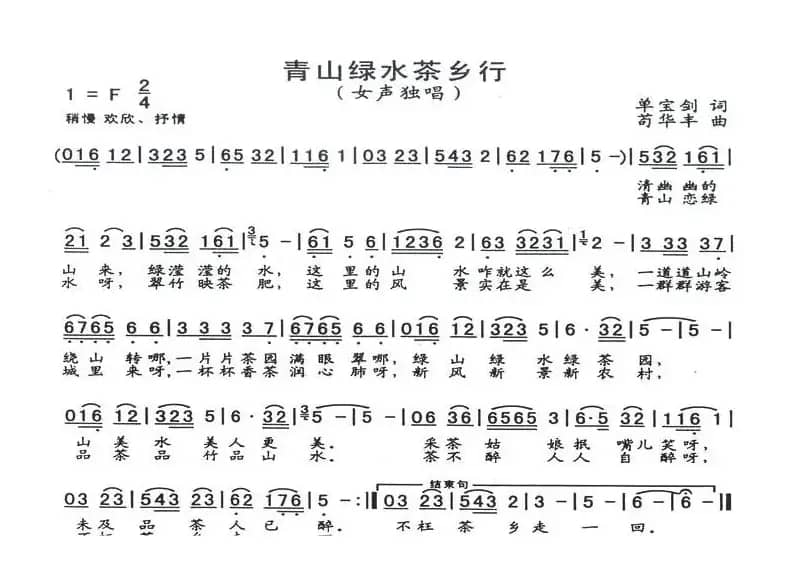 青山绿水茶乡行
1 = F 2/4
（女声独唱）
单宝剑 词
稍慢 欢欣、抒情
苟华丰 曲
(016 12|323 5|65 32|116 1|03 23|543 2|62 176|5 -)|532 161|
清幽幽的
青山恋绿
21 2 3|532 161|5 -|61 5 6|1236 2|63 3231|2 -|33 33 7|
山来，绿滢滢的水，这里的山水咋就这么美，一道道山岭
水呀，翠竹映茶肥，这里的风景实在是美，一群群游客
6765 6 6|3 3 3 3|6765 6 6|016 12|323 5|6· 32|5 -|
绕山转哪，一片片茶园满眼翠哪，绿山绿水绿茶园，
城里来呀，一杯杯香茶润心肺呀，新风新景新农村，
016 12|323 5|6· 32|5 -|06 36|6565 5|6·5 32|116 1|
山美水美人更美。采茶姑娘抿嘴儿笑呀，
品茶品竹品山水。茶不醉人人自醉呀，
结束句
03 23|543 23|62 176|5 -:‖03 23|543 2|3 5|6 -|6 -|6 -‖
未及品茶人已醉。不枉茶乡走一回。